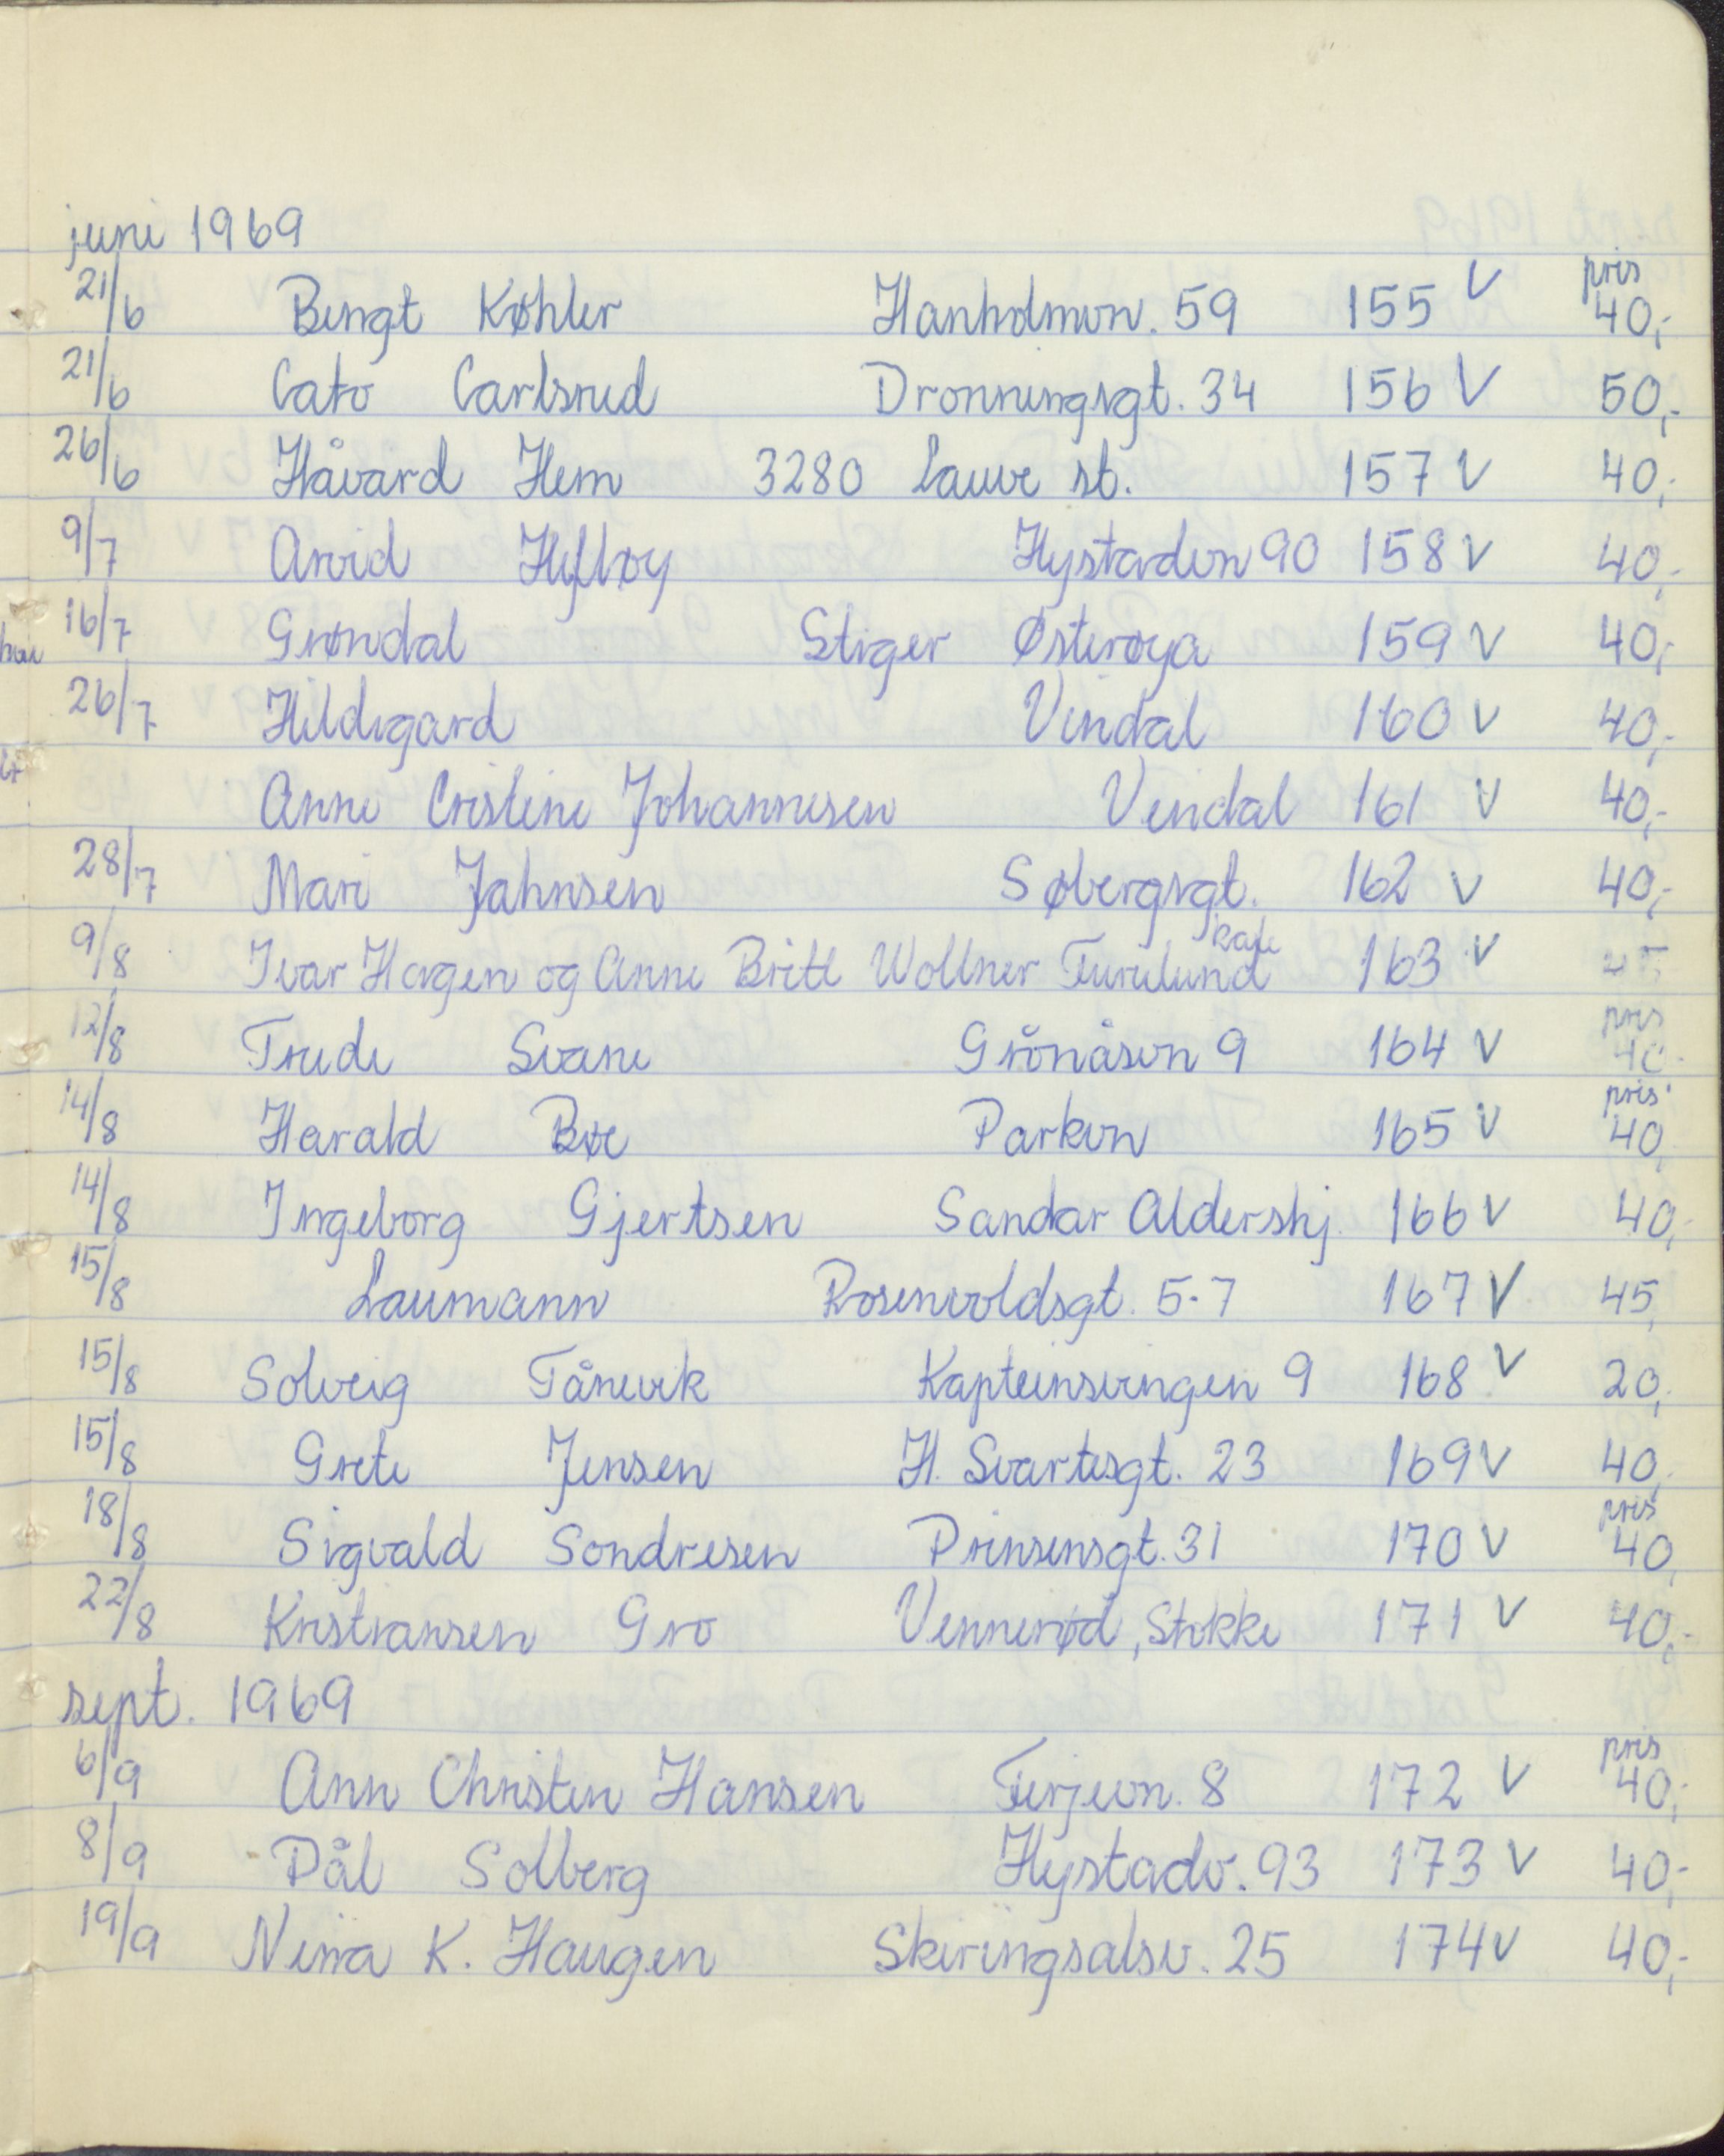 juni 1969
21/6 Bengt Køhler Hanholmvn. 59 155 V pris 40,-
21/6 Cato Carlsrud Dronningsgt. 34 156 V 50,-
26/6 Håvard Hem 3280 Lauve st. 157 V 40,-
9/7 Arvid Hefløy Hystadvn 90 158 V 40,-
16/7 Grøndal Stiger Østerøya 159 V 40,-
26/7 Hildegard Vindal 160 V 40,-
Anne Cristine Johannesen Vindal 161 V 40,-
28/7 Mari Jahnsen Søbergsgt. 162 V 40,-
9/8 Ivar Hagen og Anne Britt Wollner Furulund kafe 163 V
12/8 Trude Svane Grönåsen 9 164 V pris 40
14/8 Harald Bøe Parken 165 V pris 40,
14/8 Ingeborg Gjertsen Sandar Aldershj. 166 V 40,-
15/8 Laumann Rosenvoldsgt. 5-7 167 V 45,
15/8 Solveig Tånevik Kapteinsvingen 9 168 V 20,
15/8 Grete Jensen H. Svartesgt. 23 169 V 40,
18/8 Sigvald Sondresen Prinsensgt. 31 170 V pris 40,
22/8 Kristiansen Gro Vennerød, Stokke 171 V 40,-
sept. 1969
6/9 Ann Christin Hansen Terjevn. 8 172 V pris 40,-
8/9 Pål Solberg Hystadv. 93 173 V 40,-
19/9 Nina K. Haugen Skiringsalsv. 25 174 V 40,-